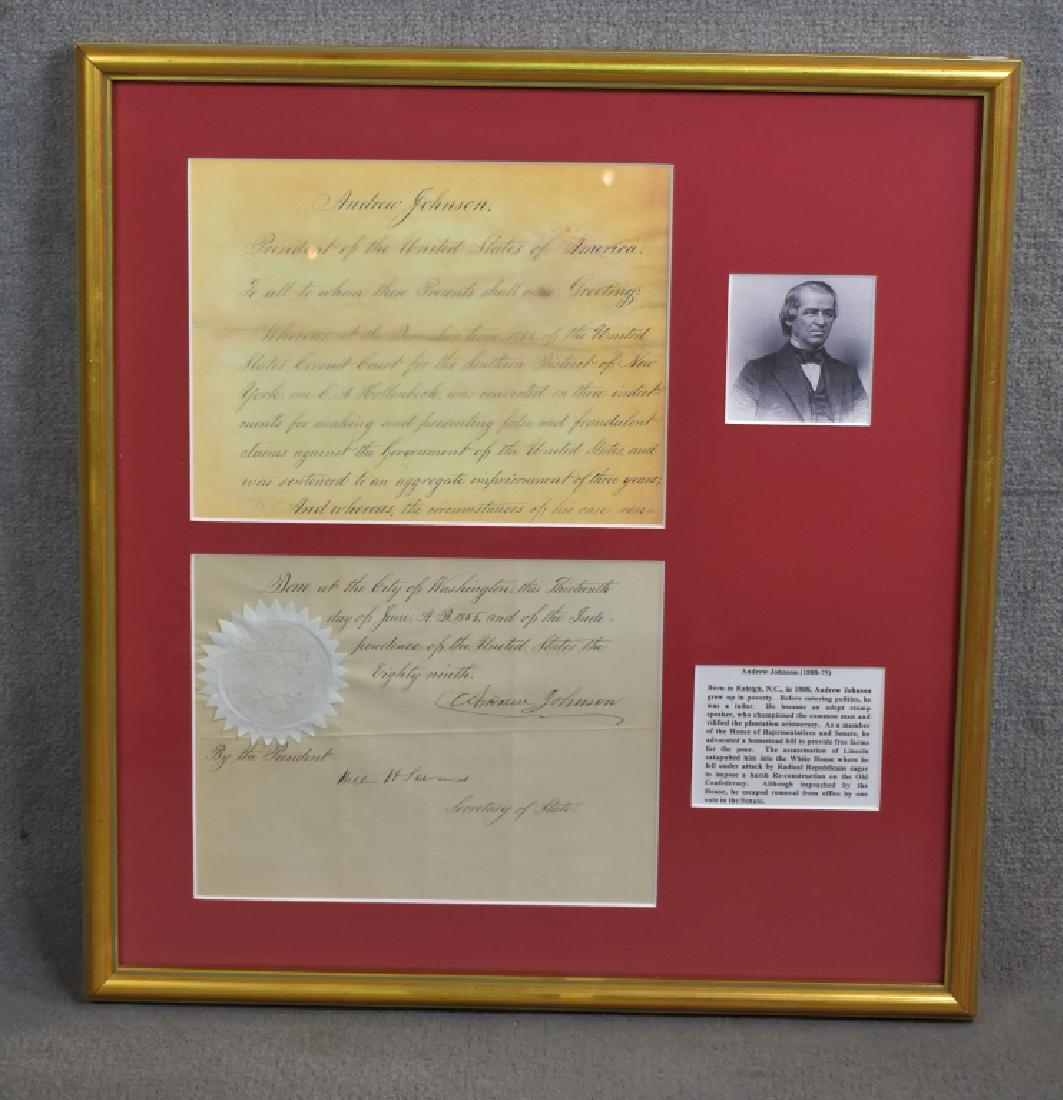 Andrew Johnson.
President of the United States of America.
To all to whom these Presents shall come, Greeting:
Whereas, at the December term, 1864, of the United
States Circuit Court for the Southern District of New
York, one C. A. Hollenbeck, was convicted on three indict-
ments for making and presenting false and fraudulent
claims against the Government of the United States, and
was sentenced to an aggregate imprisonment of three years;
And whereas, the circumstances of his case ren-
Done at the City of Washington, this Thirteenth
day of June, A.D. 1865, and of the Inde-
pendence of the United States the
Eighty-ninth.
Andrew Johnson
By the President
Secretary of State.
Andrew Johnson (1808-75)
Born in Raleigh, N.C., in 1808, Andrew Johnson
grew up in poverty. Before entering politics, he
was a tailor. He became an adept stump
speaker, who championed the common man and
vilified the plantation aristocracy. As a member
of the House of Representatives and Senate, he
advocated a homestead bill to provide free farms
for the poor. The assassination of Lincoln
catapulted him into the White House where he
fell under attack by Radical Republicans eager
to impose a harsh Re-construction on the Old
Confederacy. Although impeached by the
House, he escaped removal from office by one
vote in the Senate.